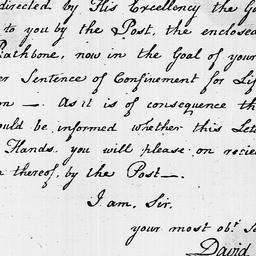 directed by His Excellency the Go
to you by the Post, the enclosed
Rathbone, now in the Goal of your
er Sentence of Confinement for Lif
on —. As it is of consequence th
ould be informed whether this Lett
Hands. you will please on reciev
n thereof, by the Post —.
I am, Sir,
your most obt. Se
David